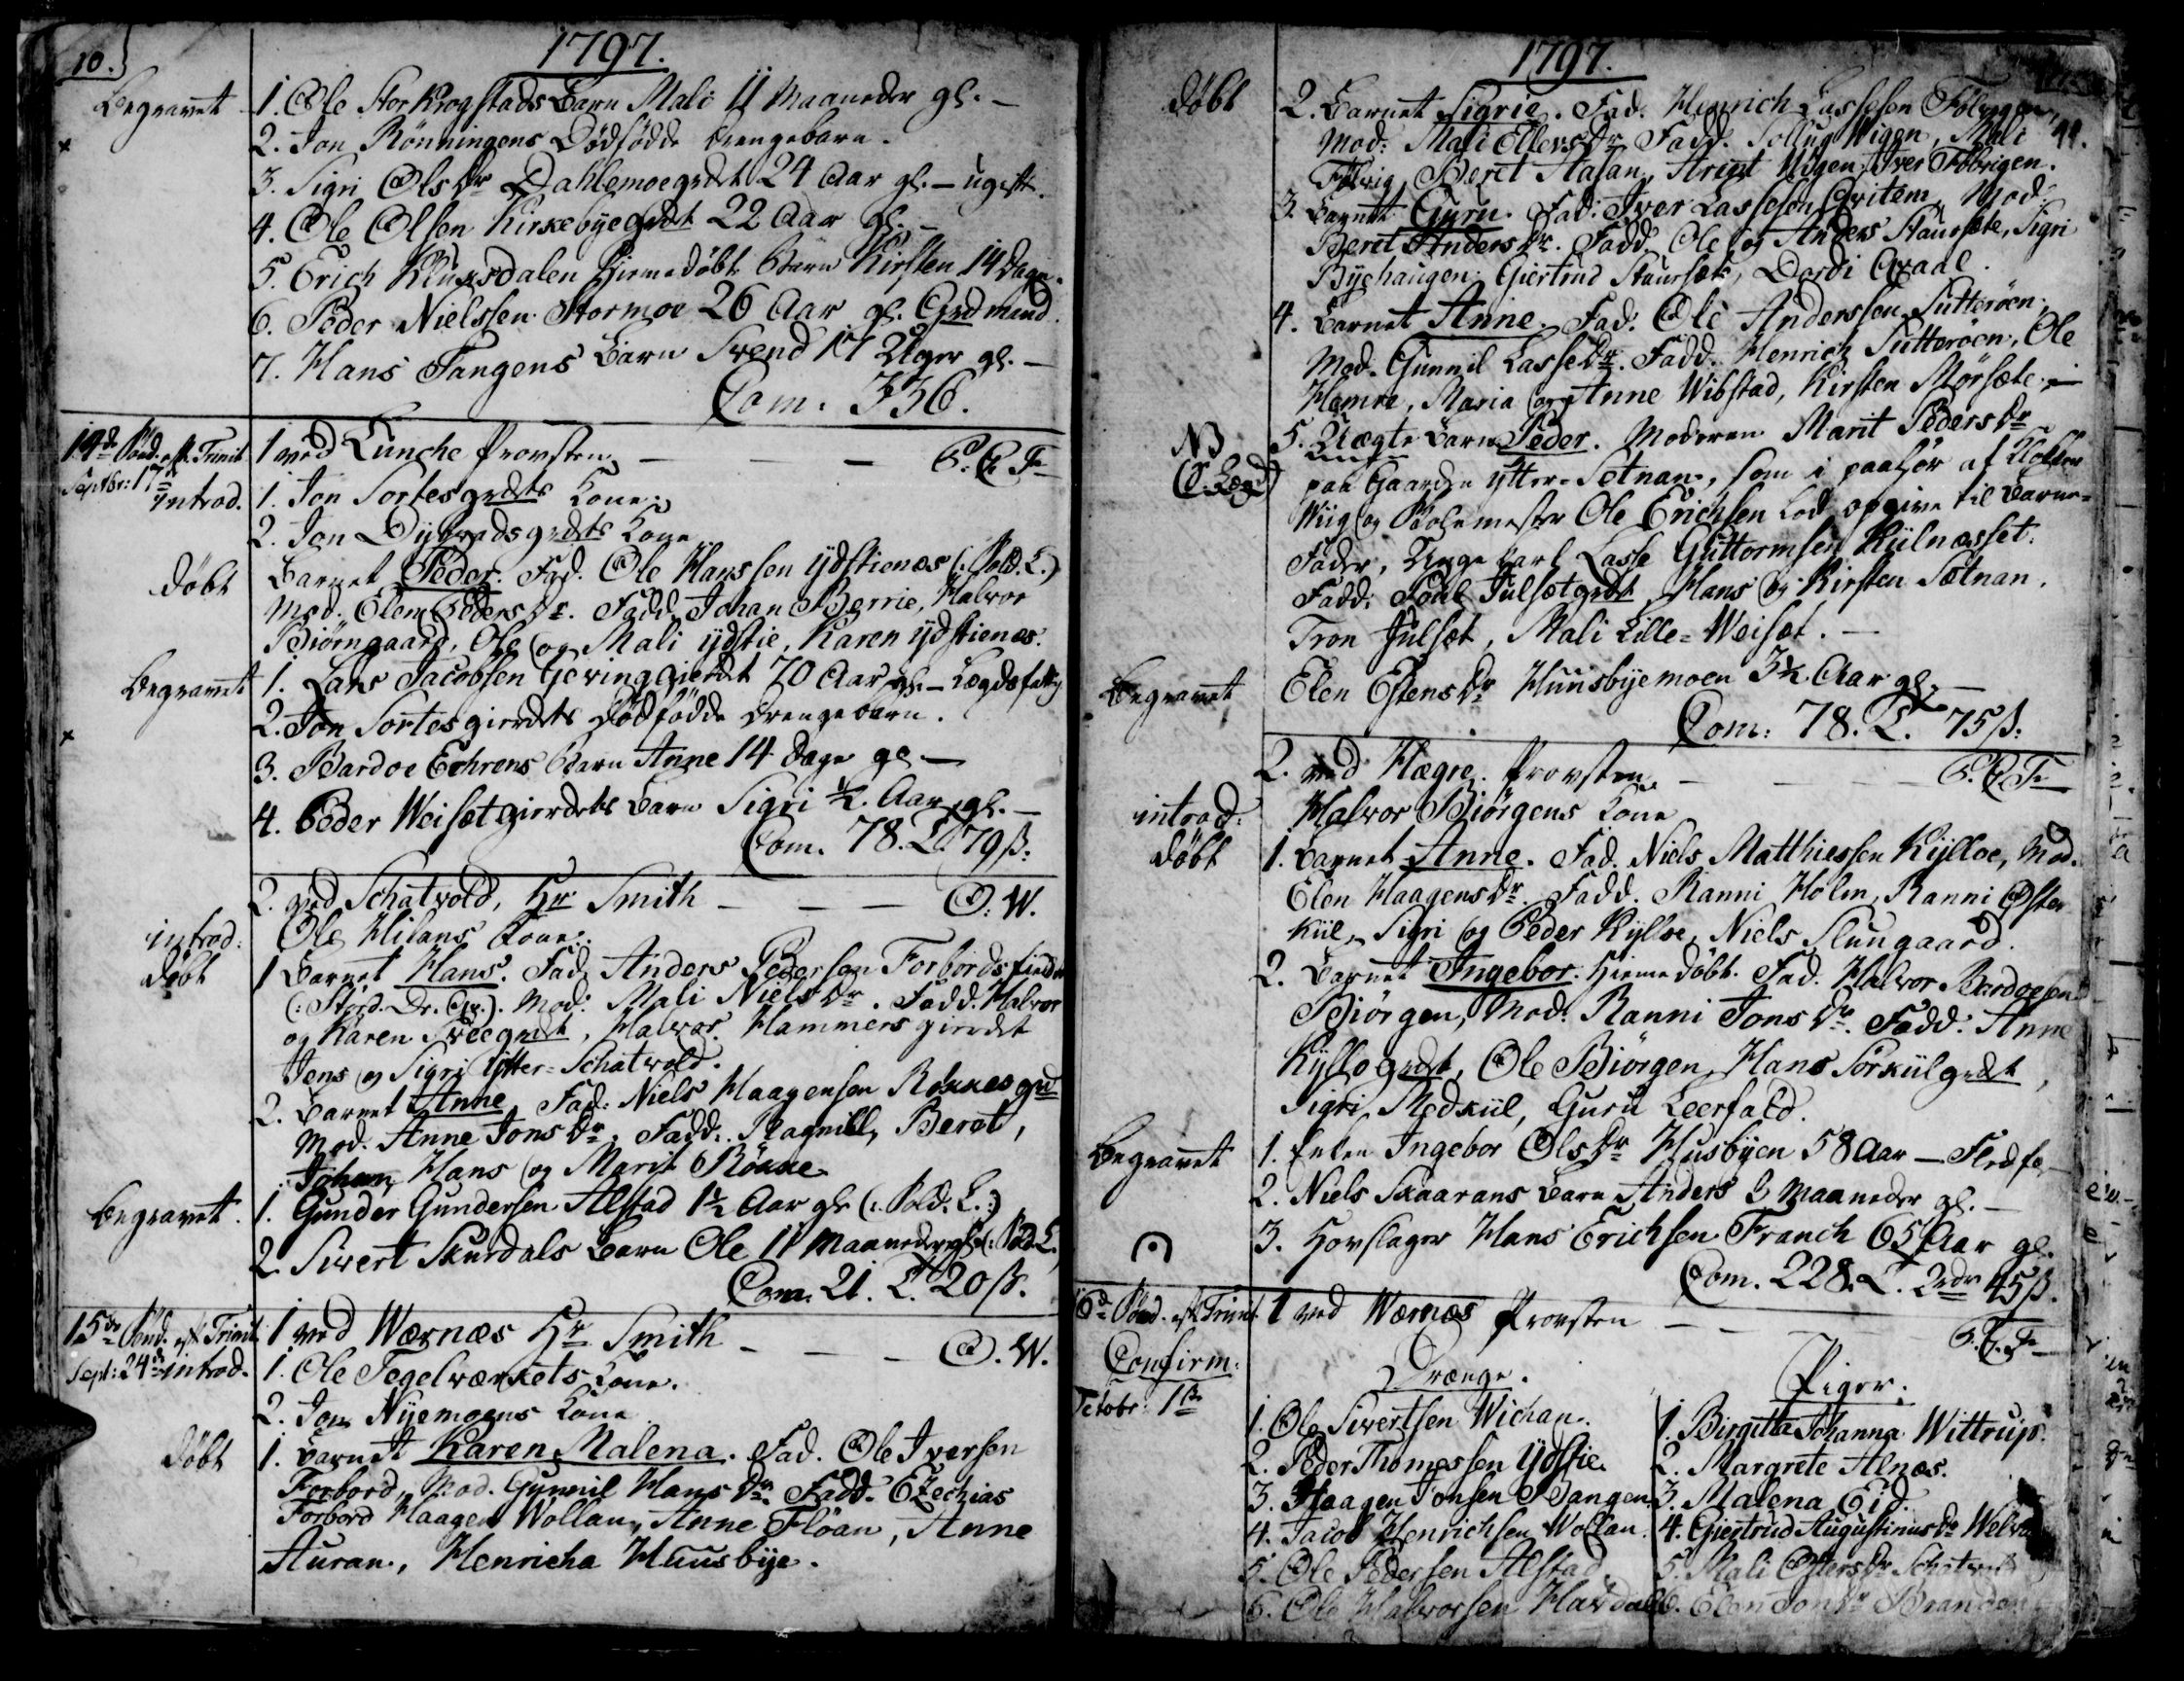 10.
1797.
Begravet
1. Ole Stor Krogstads Barn Mali 11 Maaneder gl. –
2. Jon Rönningens Dödfödde drengebarn.
3. Sigri Olsdr Dahlemoegrdt 24 Aar gl. – ugift.
4. Ole Olsen Kirkebyegrdt 22 Aar gl. –
5. Erich Kluksdalen hiemedöbt Barn Kirsten 14 dage.
6. Peder Nielssen Stormoe 26 Aar gl. Grdmand.
7. Hans Fangens Barn Svend 17 Uger gl. –
Com. 336.
14de Sönd. eft. Trinit. 1 ved Lunche Provsten – – – P. C. F.
Septbr: 17de
introd. 1. Jon Sortesgrdts Kone.
2. Jon Dybvadsgrdts Kone
döbt Barnet Peder. Fad. Ole Hanssen ydstienæs (: Sold. L.)
Mod. Elen Pedersdr. Fadd. Johan Berrie, Halvor
Biörngaard, Ole og Mali ydstie, Karen ydstienæs.
Begravet 1. Lars Jacobsen Gevinggierdet 70 Aar gl. – Lægdsfattig
2. Jon Sortesgierdets dödfödde drengebarn.
3. Bardoe Echrens Barn Anne 14 dage gl. –
4. Peder Weisetgierdets Barn Sigri ½ Aar gl. –
Com. 78. L. 79 ß.
2. ved Schatvold, Hr Smith – – – O. W.
introd: Ole Hilans Kone.
döbt 1 Barnet Hans. Fad. Anders Pedersen Forbordsfieldet
(: Stiord. Dr. Cp.). Mod: Mali Nielsdr. Fadd. Halvor
og Karen Sveegrdt, Halvor Hammersgierdet
Jens og Sigri Ytter-Schatvold.
2. Barnet Anne Fad. Niels Haagensen Rökkesgrd
Mod. Anne Jonsdr. Fadd. Ragnill, Beret,
Johan, Hans og Marit Rökke
Begravet. 1. Gunder Gundersen Alstad 1½ Aar gl. (: Sold. L.:)
2. Sivert Skurdals Barn Ole 11 Maaneder gl. (: Sold. L.
Com. 21. L. 20 ß.
15de Sönd. eft. Trinit. 1 ved Wærnæs Hr Smith – – – O. W.
Sept: 24de introd. 1. Ole Tegelværkets Kone.
2. Jon Nyemoens Kone
döbt 1. Barnet Karen Malena. Fad. Ole Iversen
Forbord, Mod. Gunnil Hansdr. Fadd. Ezechias
Forbord Haagen Wollan, Anne Flöan, Anne
Auran, Henricha Huusbye.
1797.
11.
döbt 2. Barnet Sigrie. Fad. Henrich Lassesen
Mod: Mali Ellevsdr Fadd. Wigen, Mali
Beret Aasan, Wigen, Iver
3. Barnet Guru. Fad: Iver Lassesen Qvitem, Mod:
Beret Andersdr. Fadd. Ole og Anders Staursæte, Sigri
Byehaugen, Giertrud Staursæte, Dordi Qvaal.
4. Barnet Anne. Fad. Ole Anderssen Sutteröen,
Mod. Gunnil Lassedr. Fadd. Henrich Sutteröen, Ole
Hamre, Maria og Anne Wibstad, Kirsten Mörsæte. –
NB 5. Uægte Barn Peder. Moderen Marit Pedersdr
paa Gaarden Ytter-Setnan, som i paahör af
Wiig og Skolemester Ole Erichsen lod opgive til Barne-
Fader, Unge Karl Lasse Guttormsen Kiilnæsset.
Fadd: Povel Julsetgrdt, Hans og Kirsten Sætnan.
Tron Julset, Mali Lille-Weiset. –
Begravet Elen Estensdr Huusbyemoen 3½ Aar gl. –
Com: 78. L. 75 ß.
2. ved Hægre. Provsten – – – P. C. F.
introd: Halvor Biörgens Kone
döbt 1. Barnet Anne. Fad. Niels Matthiessen Kylloe, Mod.
Elen Haagensdr. Fadd. Ranni Holm, Ranni Öster
Kiil, Sigri og Peder Kylloe, Niels Stuugaard.
2. Barnet Ingebor. Hiemedöbt. Fad. Halvor Bardoesen
Biörgen, Mod: Ranni Jonsdr. Fadd. Anne
Kyllogrdt, Ole Biörgen, Hans Sörkiilgrdt,
Sigri Medkiil, Guru Leerfald.
Begravet 1. Enken Ingebor Olsdr Husbyen 58 Aar –
2. Niels Skaarans Barn Anders 3 Maaneder gl. –
3. Hovslager Hans Erichsen Franch 65 Aar gl.
Com. 228. L. 2rdr 45 ß.
16de Sönd. eft. Trinit. 1 ved Wærnæs Provsten – – – P. C. F.
Confirm:
Octobr: 1ste
Drænge.
1. Ole Sivertsen Wichan.
2. Peder Thomessen Ydstie.
3. Haagen Jonsen Bangen
4. Jacob Henrichsen Wollan.
5. Ole Pedersen Alstad.
6. Ole Halvorsen
Piger.
1. Birgitta Johanna Wittrup.
2. Margrete Alnæs.
3. Malena Eid.
4. Giertrud Augustinusdr
5. Mali
6. Elen Jonsdr